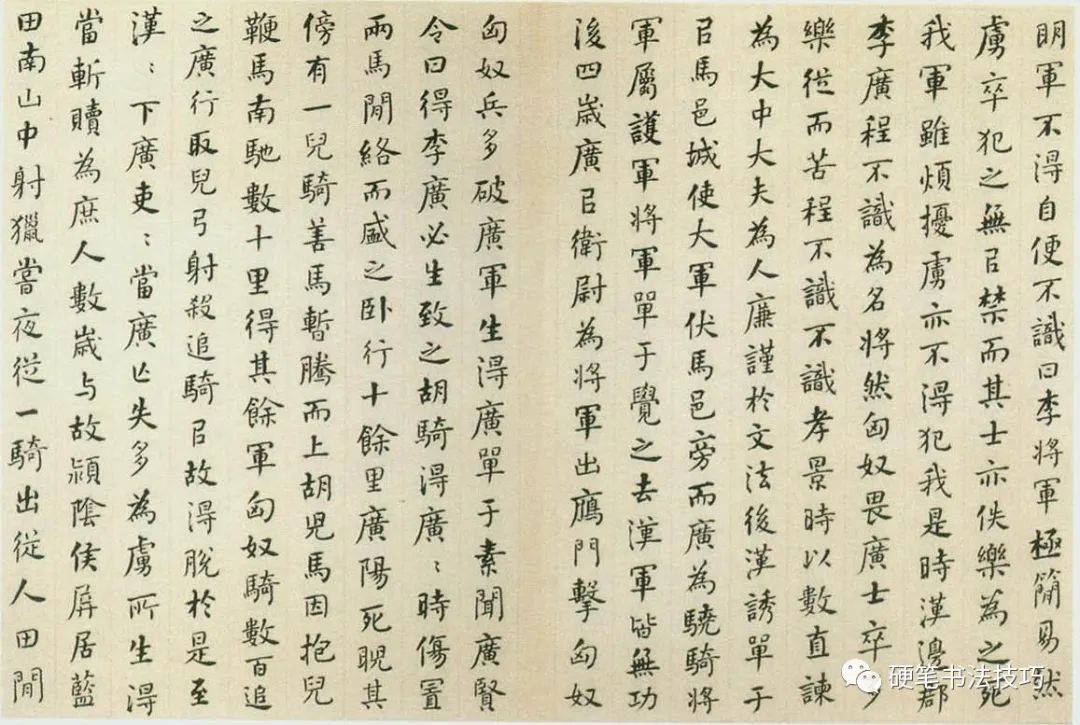 明軍不得自便不識曰李將軍極簡易然
虜卒犯之無㠯禁而其士亦佚樂為之死
我軍雖煩擾虜亦不得犯我是時漢邊郡
李廣程不識為名將然匈奴畏廣士卒多
樂從而苦程不識不識孝景時以數直諫
為大中大夫為人廉謹於文法後漢誘單于
㠯馬邑城使大軍伏馬邑旁而廣為驍騎將
軍屬護軍將軍單于覺之去漢軍皆無功
後四歲廣㠯衛尉為將軍出鴈門擊匈奴
匈奴兵多破廣軍生得廣單于素聞廣賢
令曰得李廣必生致之胡騎得廣〻時傷置
兩馬閒絡而盛之卧行十餘里廣陽死睨其
傍有一兒騎善馬暫騰而上胡兒馬因抱兒
鞭馬南馳數十里得其餘軍匈奴騎數百追
之廣行取兒弓射殺追騎㠯故得脫於是至
漢〻下廣吏〻當廣亡失多為虜所生得
當斬贖為庶人數歲与故潁陰侯屏居藍
田南山中射獵嘗夜從一騎出從人田閒
硬笔书法技巧